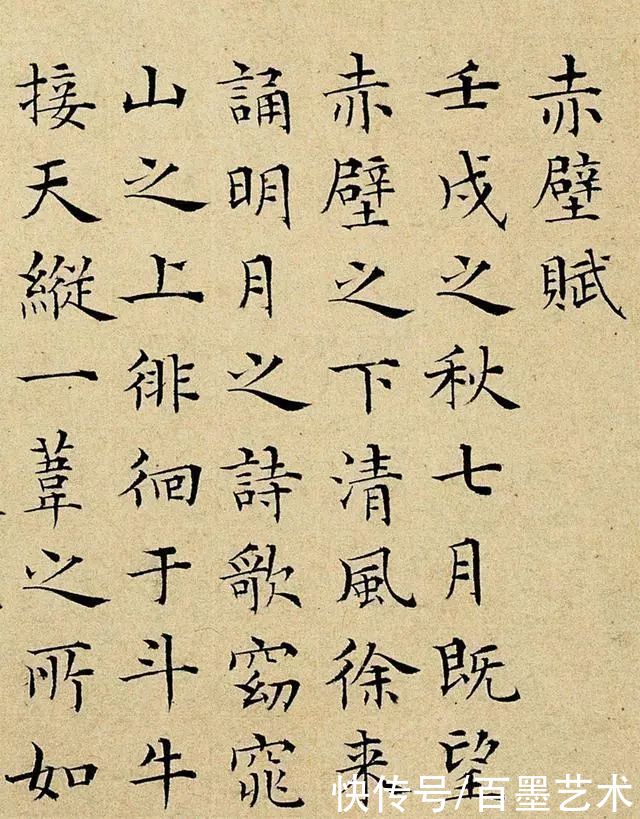 赤壁賦
壬戌之秋七月既望
赤壁之下清風徐来
誦明月之詩歌窈窕
山之上徘徊于斗牛
接天縱一葦之所如
快传号/百墨艺术